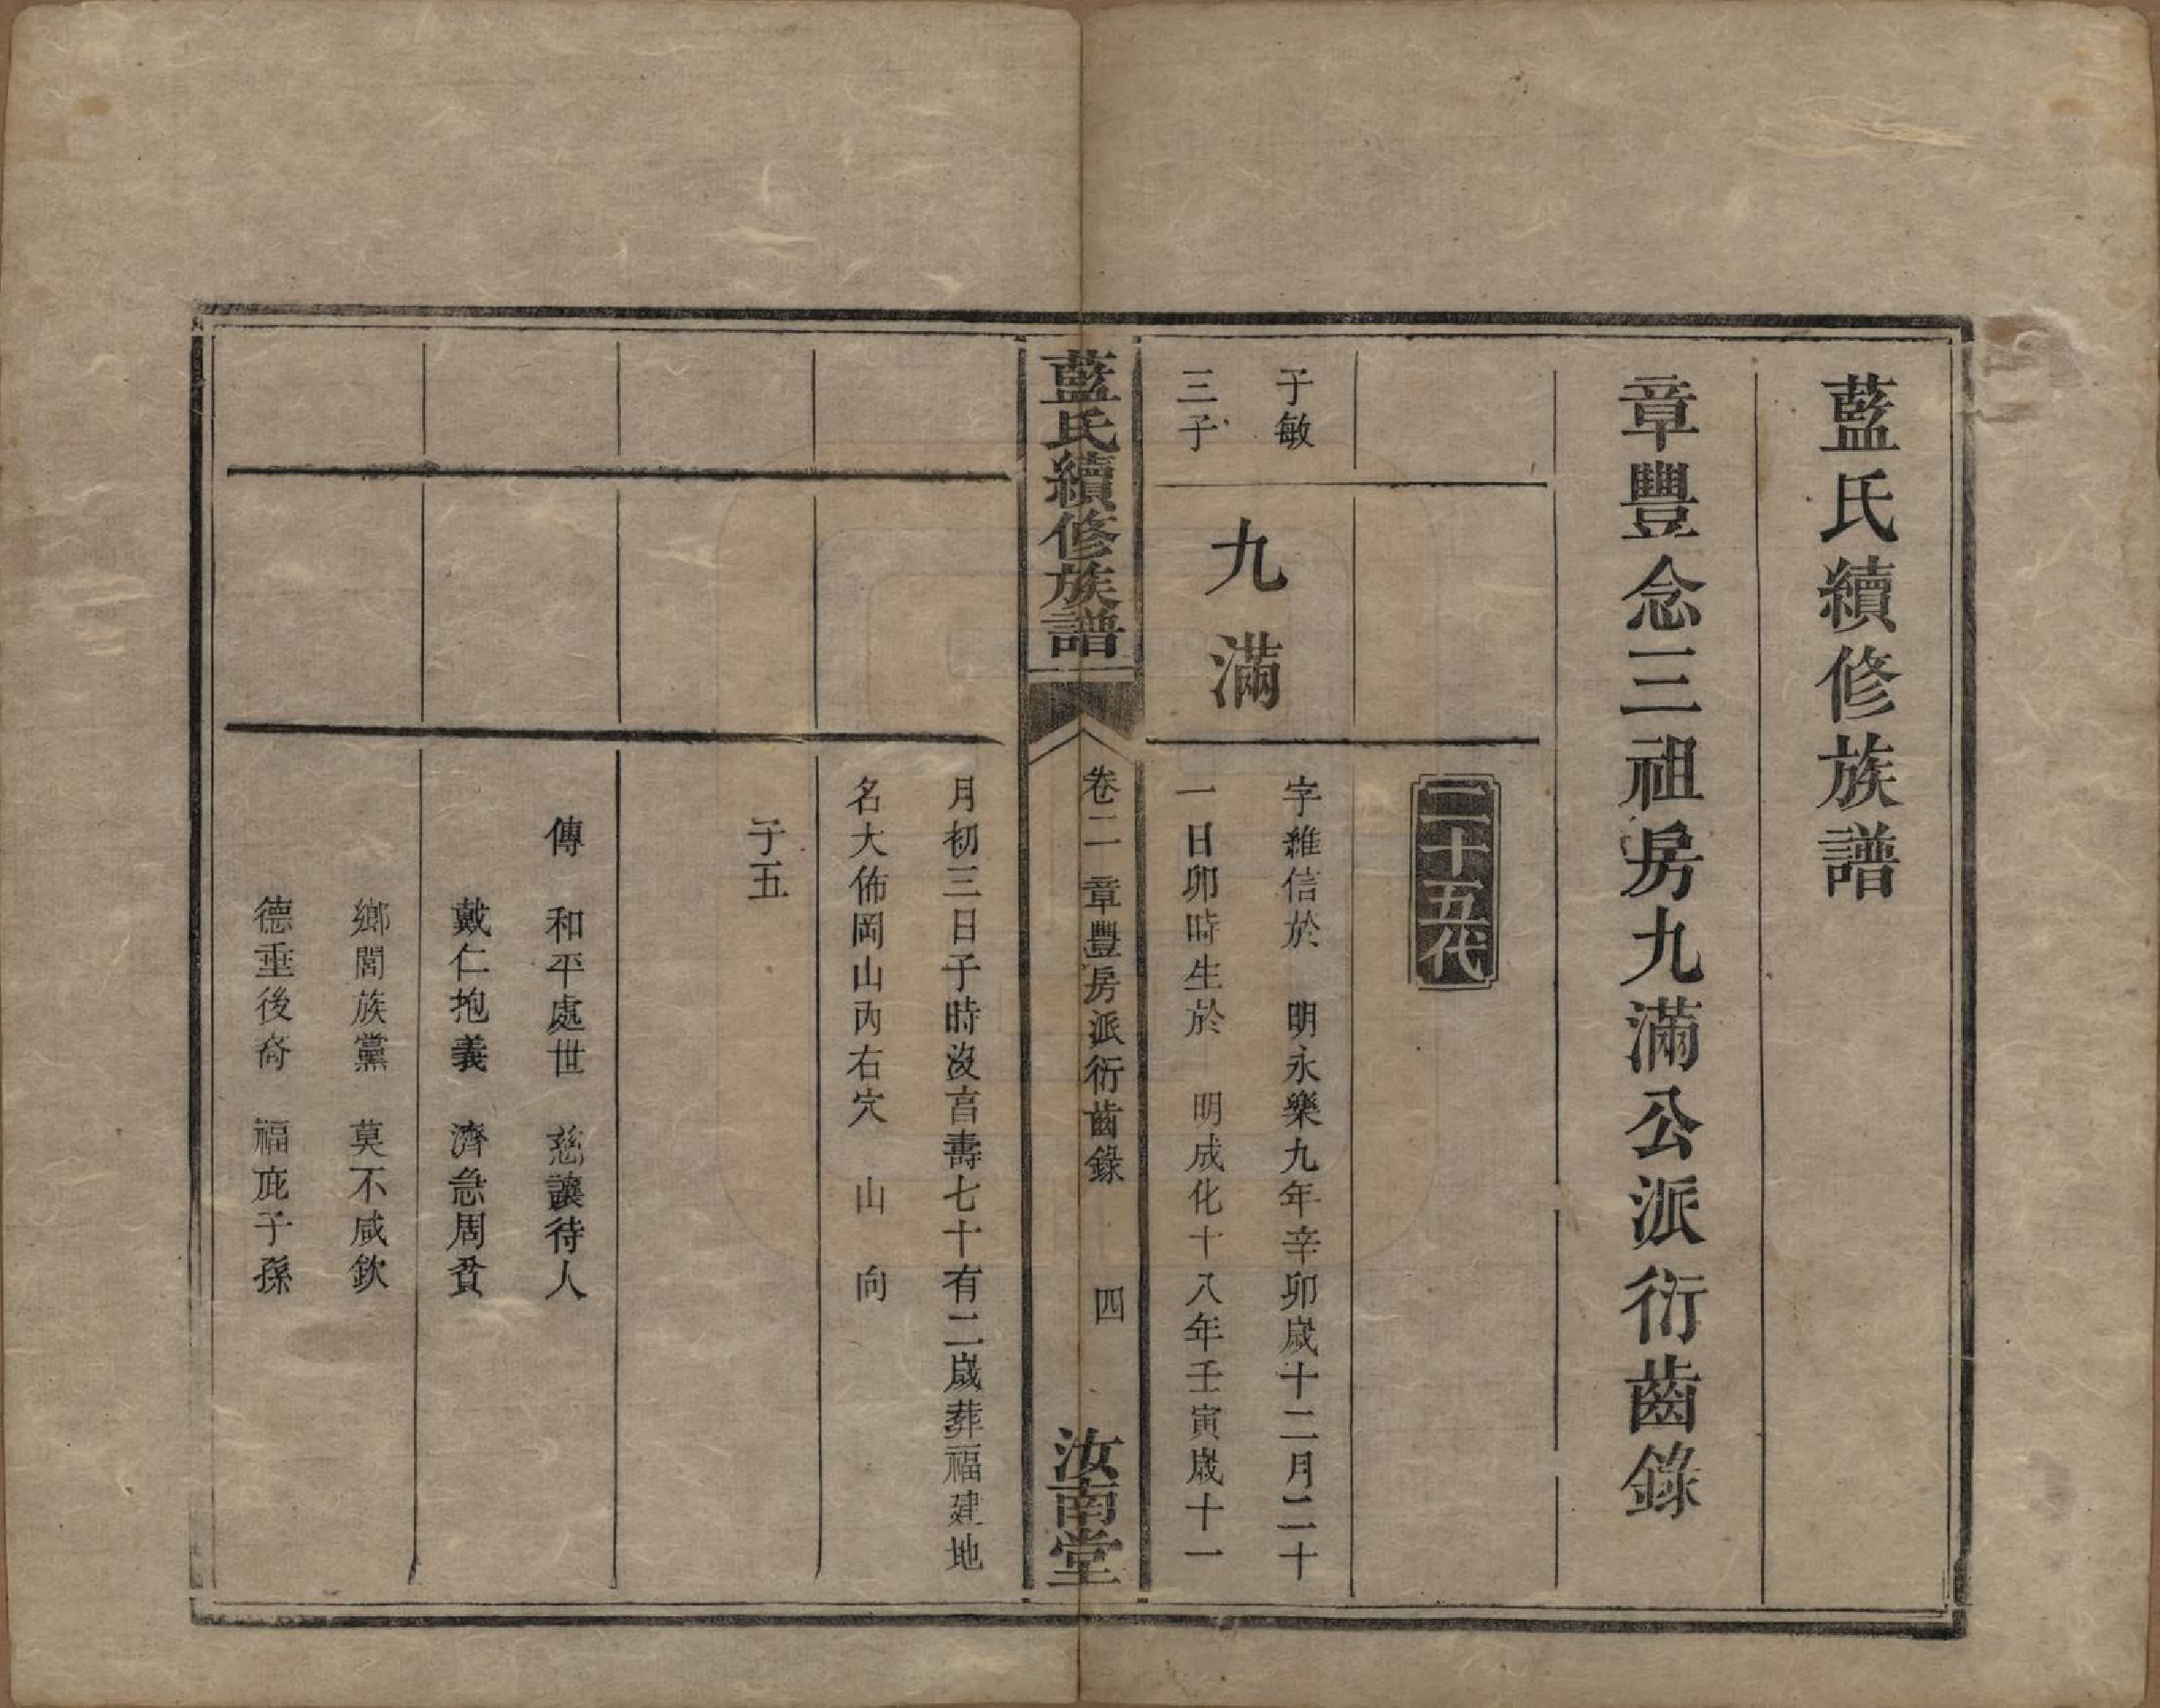 藍氏續修族譜
章豐念三祖房九滿公派衍齒錄
二十五代
于敏
三子
九滿
字維信於　明永樂九年辛卯歲十二月二十
一日卯時生於　明成化十八年壬寅歲十一
藍氏續修族譜
卷二　章豐房派衍齒錄　四
汝南堂
月初三日子時沒言壽七十有二歲葬福建地
名大佈岡山內右穴　山　向
子五
傳　和平處世　慈讓待人
戴仁抱義　濟急周貧
鄉閭族黨　莫不咸欽
德垂後裔　福庇子孫